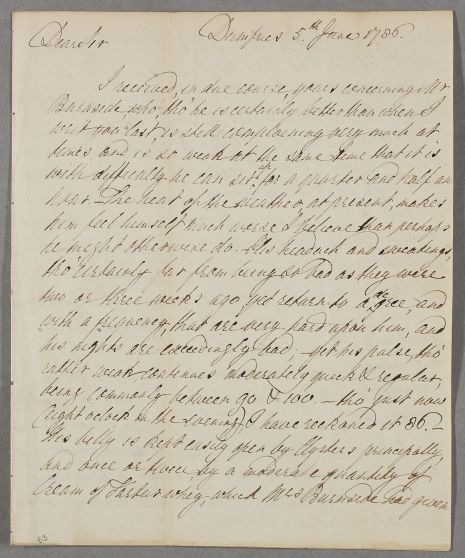 Dear Sir
Dumfries 5.th June 1786.
I received, in due course, yours concerning Mr
Burnside, who, tho' he is certainly better than when I
writ you last, is still complaining very much at
times, and is so weak at the same time that it is
with difficulty he can sit up for a quarter and half an
hour. The heat of the weather, at present, makes
him feel himself much worse I believe than perhaps
he might otherwise do. His headach and sweatings,
tho' certainly far from being so bad as they were
two or three weeks ago yet return to a degree, and
with a frequency, that are very hard upon him, and
his nights are exceedingly bad; yet his pulse, tho'
rather weak, continues moderately quick & regular,
being commonly between 90 & 100. – tho' just now
(eight oclock in the evening) I have reckoned it 86. –
His belly is kept easily open by Clysters principally,
and once or twice by a moderate quantity of
Cream of Tartar whey, which Mrs Burnside had given